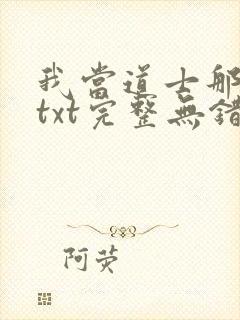 我當道士那
txt完整無錯
阿荧